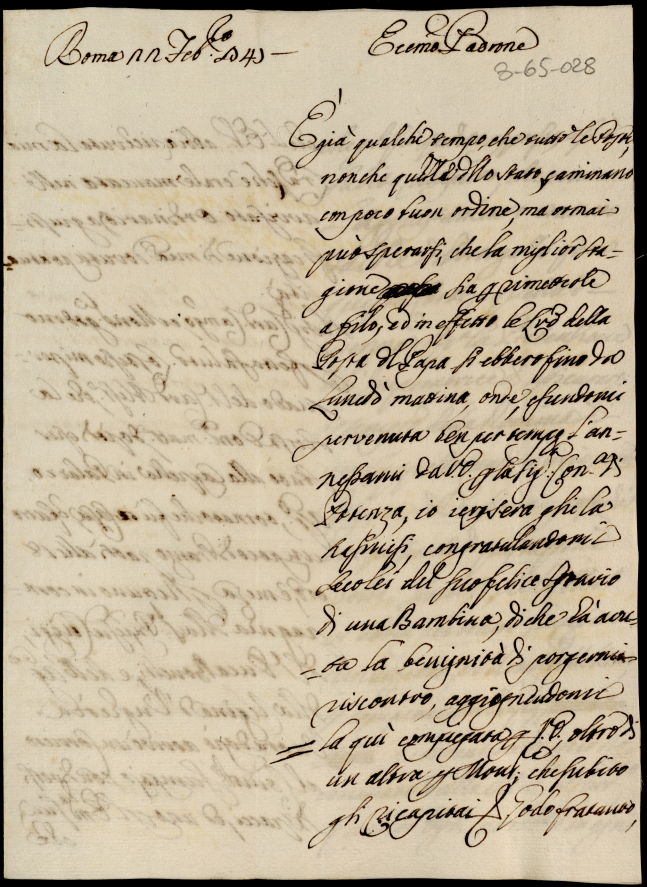 Roma 22 Feb.º 1541 — Ecemo Padrone
8-65-028
È già qualche tempo, che tutte le Poste,
nonche quelle dllo stato, caminano
con poco buon ordine, ma ormai
può sperarsi, che la miglior sta-
gione sia p rimetterle
a filo; ed in effetto le della
Posta dl Papa si ebbero fino da
Lunedì mattina, onde, essendomi
pervenuta ben per tempo l'an-
nessami dall'E. p la Sig.ra Con.a di
Potenza, io iersera ghi la
, congratulandomi
seco lei del suo felice sgravio
di una Bambina, di che à avu-
ta la benignità di porgermi
riscontro, aggiognendomi
la quì compiegata p V.E. oltre di
un altra p Mons.; che subito
gli ricapitai. Godo fratanto,